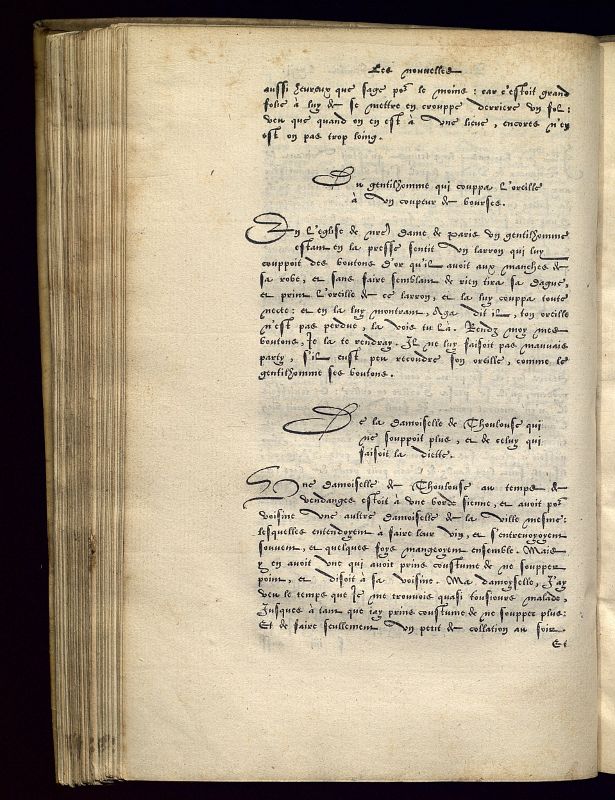 Les nouvelles
aussi heureux que sage po⁹ le moins : car c'estoit grand
folie à luy de se mettre en crouppe derriere vn fol :
veu que quand on en est à vne lieue , encores n'en
est on pas trop loing .
Du gentilhomme qui couppa l'oreille
à vn coupeur de bourses .
En l'eglise de nre Dame de Paris vn gentilhomme
estant en la presse sentit vn larron qui luy
couppoit des boutons d'or qu'il avoit aux manches de
sa robe , et sans faire semblant de rien tira sa dague ,
et print l'oreille de ce larron , et la luy couppa toute
necte : et en la luy monstrant , Aga dit il , ton oreille
n'est pas perdue , la vois tu là . Rendz moy mes
boutons , Je la te rendray . Il ne luy faisoit pas mauvais
party , s'il eust peu recoudre son oreille , comme le
gentilhomme ses boutons .
De la damoiselle de Thoulouse qui
ne souppoit plus , et de celuy qui
faisoit la diette .
Vne Damoiselle de Thoulouse au temps de
vendanges estoit à vne borde sienne , et avoit po⁹
voisine vne aultre damoiselle de la ville mesme :
lesquelles entendoyent à faire leur vin , et s'entrevoyoyent
souvent , et quelques foys mangeoyent ensemble . Mais
y en avoit vne qui avoit prins coustume de ne soupper
point , et disoit à sa voisine . Ma damoyselle , J'ay
veu le temps que Je me trouvois quasi tousiours malade ,
Jusques à tant que iay prins coustume de ne soupper plus :
Et de faire seullement vn petit de collation au soir .
Et